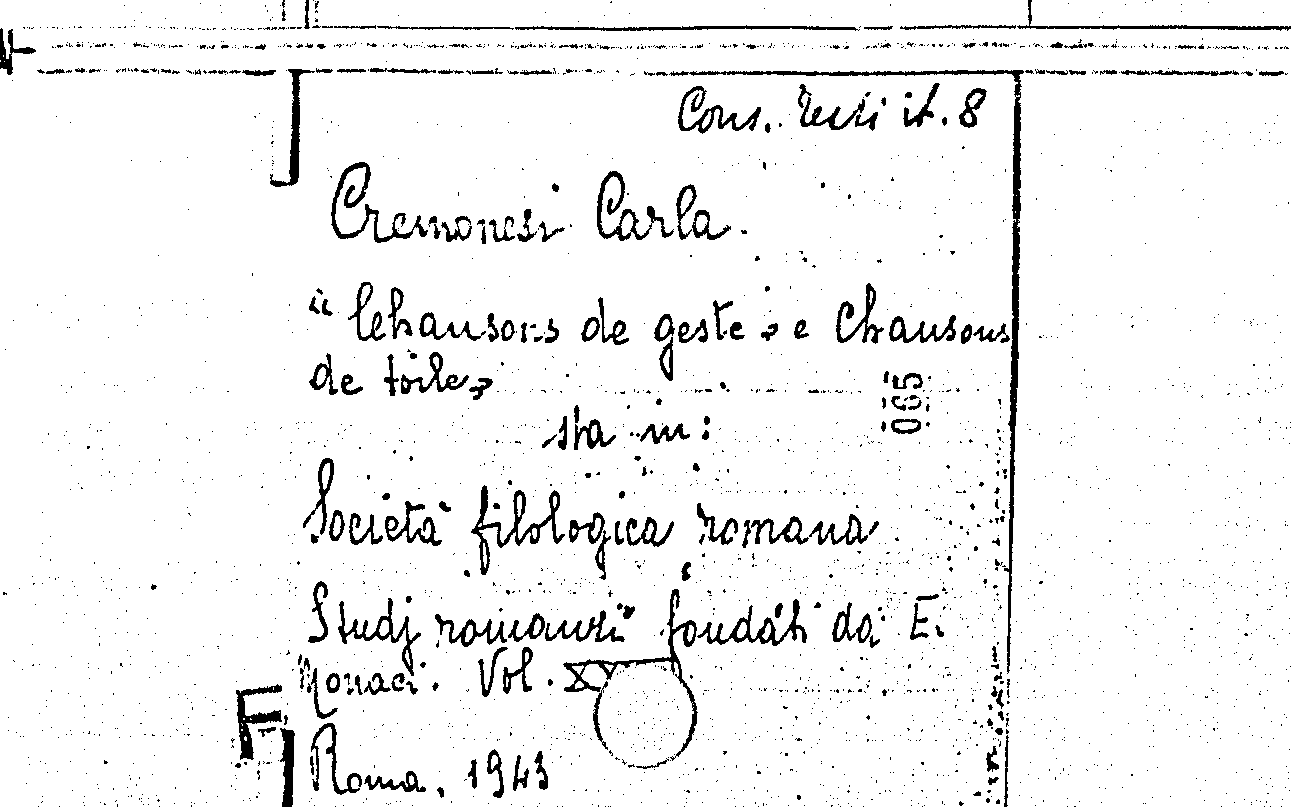 Cons. Testi it. 8
Cremonesi Carla.
" Chansons de geste " e Chansons
de toile "
065
sta in:
Società filologica romana
Studj romanzi fondati da E.
Monaci. Vol.
F
Roma, 1943